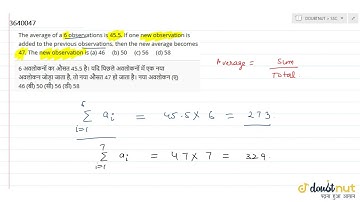 DOUBTNUT > SSC
3640047
The average of a 6 observations is 45.5. If one new observation is
added to the previous observations. then the new average becomes
47. The new observation is (a) 46 (b) 50 (c) 56 (d) 58
6 अवलोकनों का औसत 45.5 है। यदि पिछले अवलोकनों में एक नया
अवलोकन जोड़ा जाता है, तो नया औसत 47 हो जाता है। नया अवलोकन (ए)
46 (बी) 50 (सी) 56 (डी) 58
Average = Sum / Total
6 Σ i=1 ai = 45.5 X 6 = 273
7 Σ i=1 ai = 47 X 7 = 329
doubtnut
पढ़ना हुआ आसान